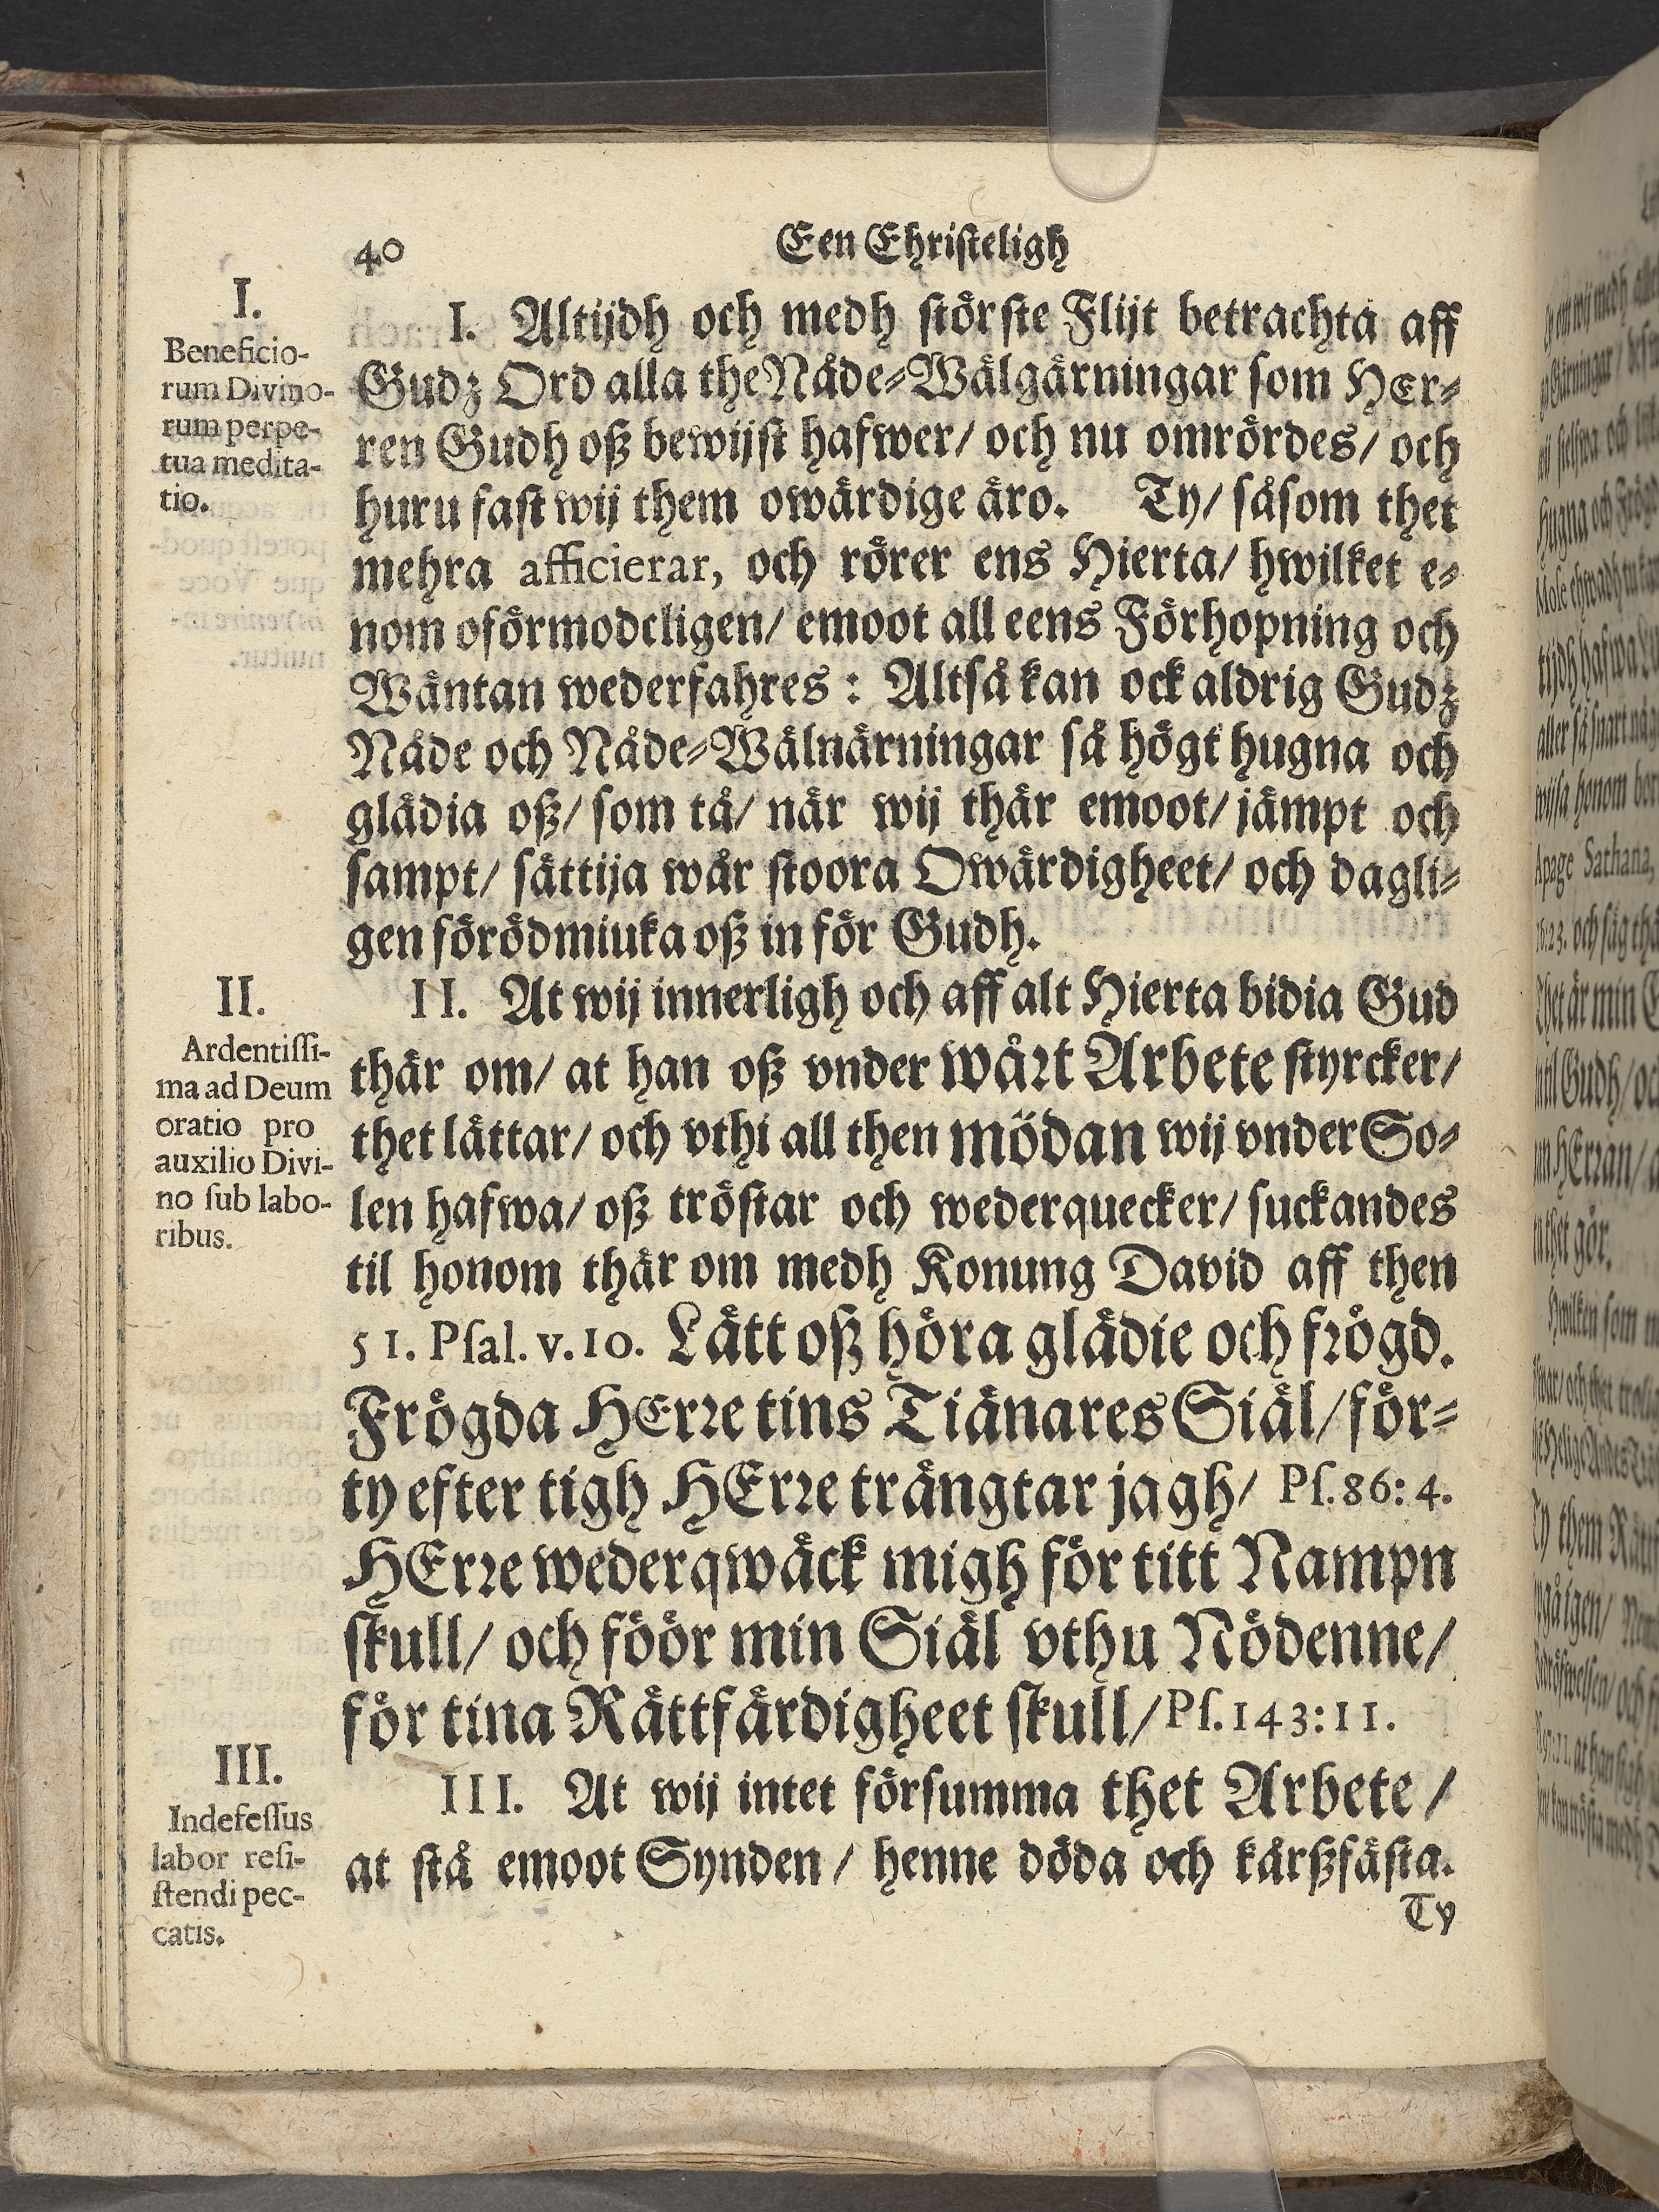 40
Een Christeligh
I.
Beneficio-
rum Divino-
rum perpe-
tua medita-
tio.
I. Altijdh och medh störste Flijt betrachta aff
Gudz Ord alla the Nåde-Wälgärningar som HEr-
ren Gudh oß bewijst hafwer/ och nu omrördes/ och
huru fast wij them owärdige äro. Ty/ såsom thet
mehra afficierar, och rörer ens Hierta/ hwilket e-
nom oförmodeligen/ emoot all eens Förhopning och
Wäntan wederfahres: Altså kan ock aldrig Gudz
Nåde och Nåde-Wälnärningar så högt hugna och
glädia oß/ som tå/ när wij thär emoot/ jämpt och
sampt/ sättija wår stoora Owärdigheet/ och dagli-
gen förödmiuka oß in för Gudh.
II.
Ardentissi-
ma ad Deum
oratio pro
auxilio Divi-
no sub labo-
ribus.
II. At wij innerligh och aff alt Hierta bidia Gud
thär om/ at han oß vnder wårt Arbete styrcker/
thet lättar/ och vthi all then mödan wij vnder So-
len hafwa/ oß tröstar och wederquecker/ suckandes
til honom thär om medh Konung David aff then
51. Psal. v. 10. Lätt oß höra glädie och frögd.
Frögda HErre tins Tiänares Siäl/ för-
ty efter tigh HErre trängtar jagh/ Ps. 86: 4.
HErre wederqwäck migh för titt Nampn
skull/ och föör min Siäl vthu Nödenne/
för tina Rättfärdigheet skull/ Ps. 143: 11.
III.
Indefessus
labor resi-
stendi pec-
catis.
III. At wij intet försumma thet Arbete/
at stå emoot Synden/ henne döda och kårßfästa.
Ty